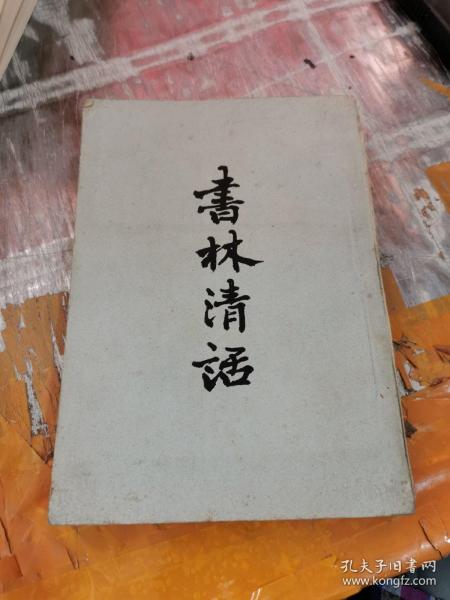 書林清話
孔夫子旧书网
www.kongfz.com